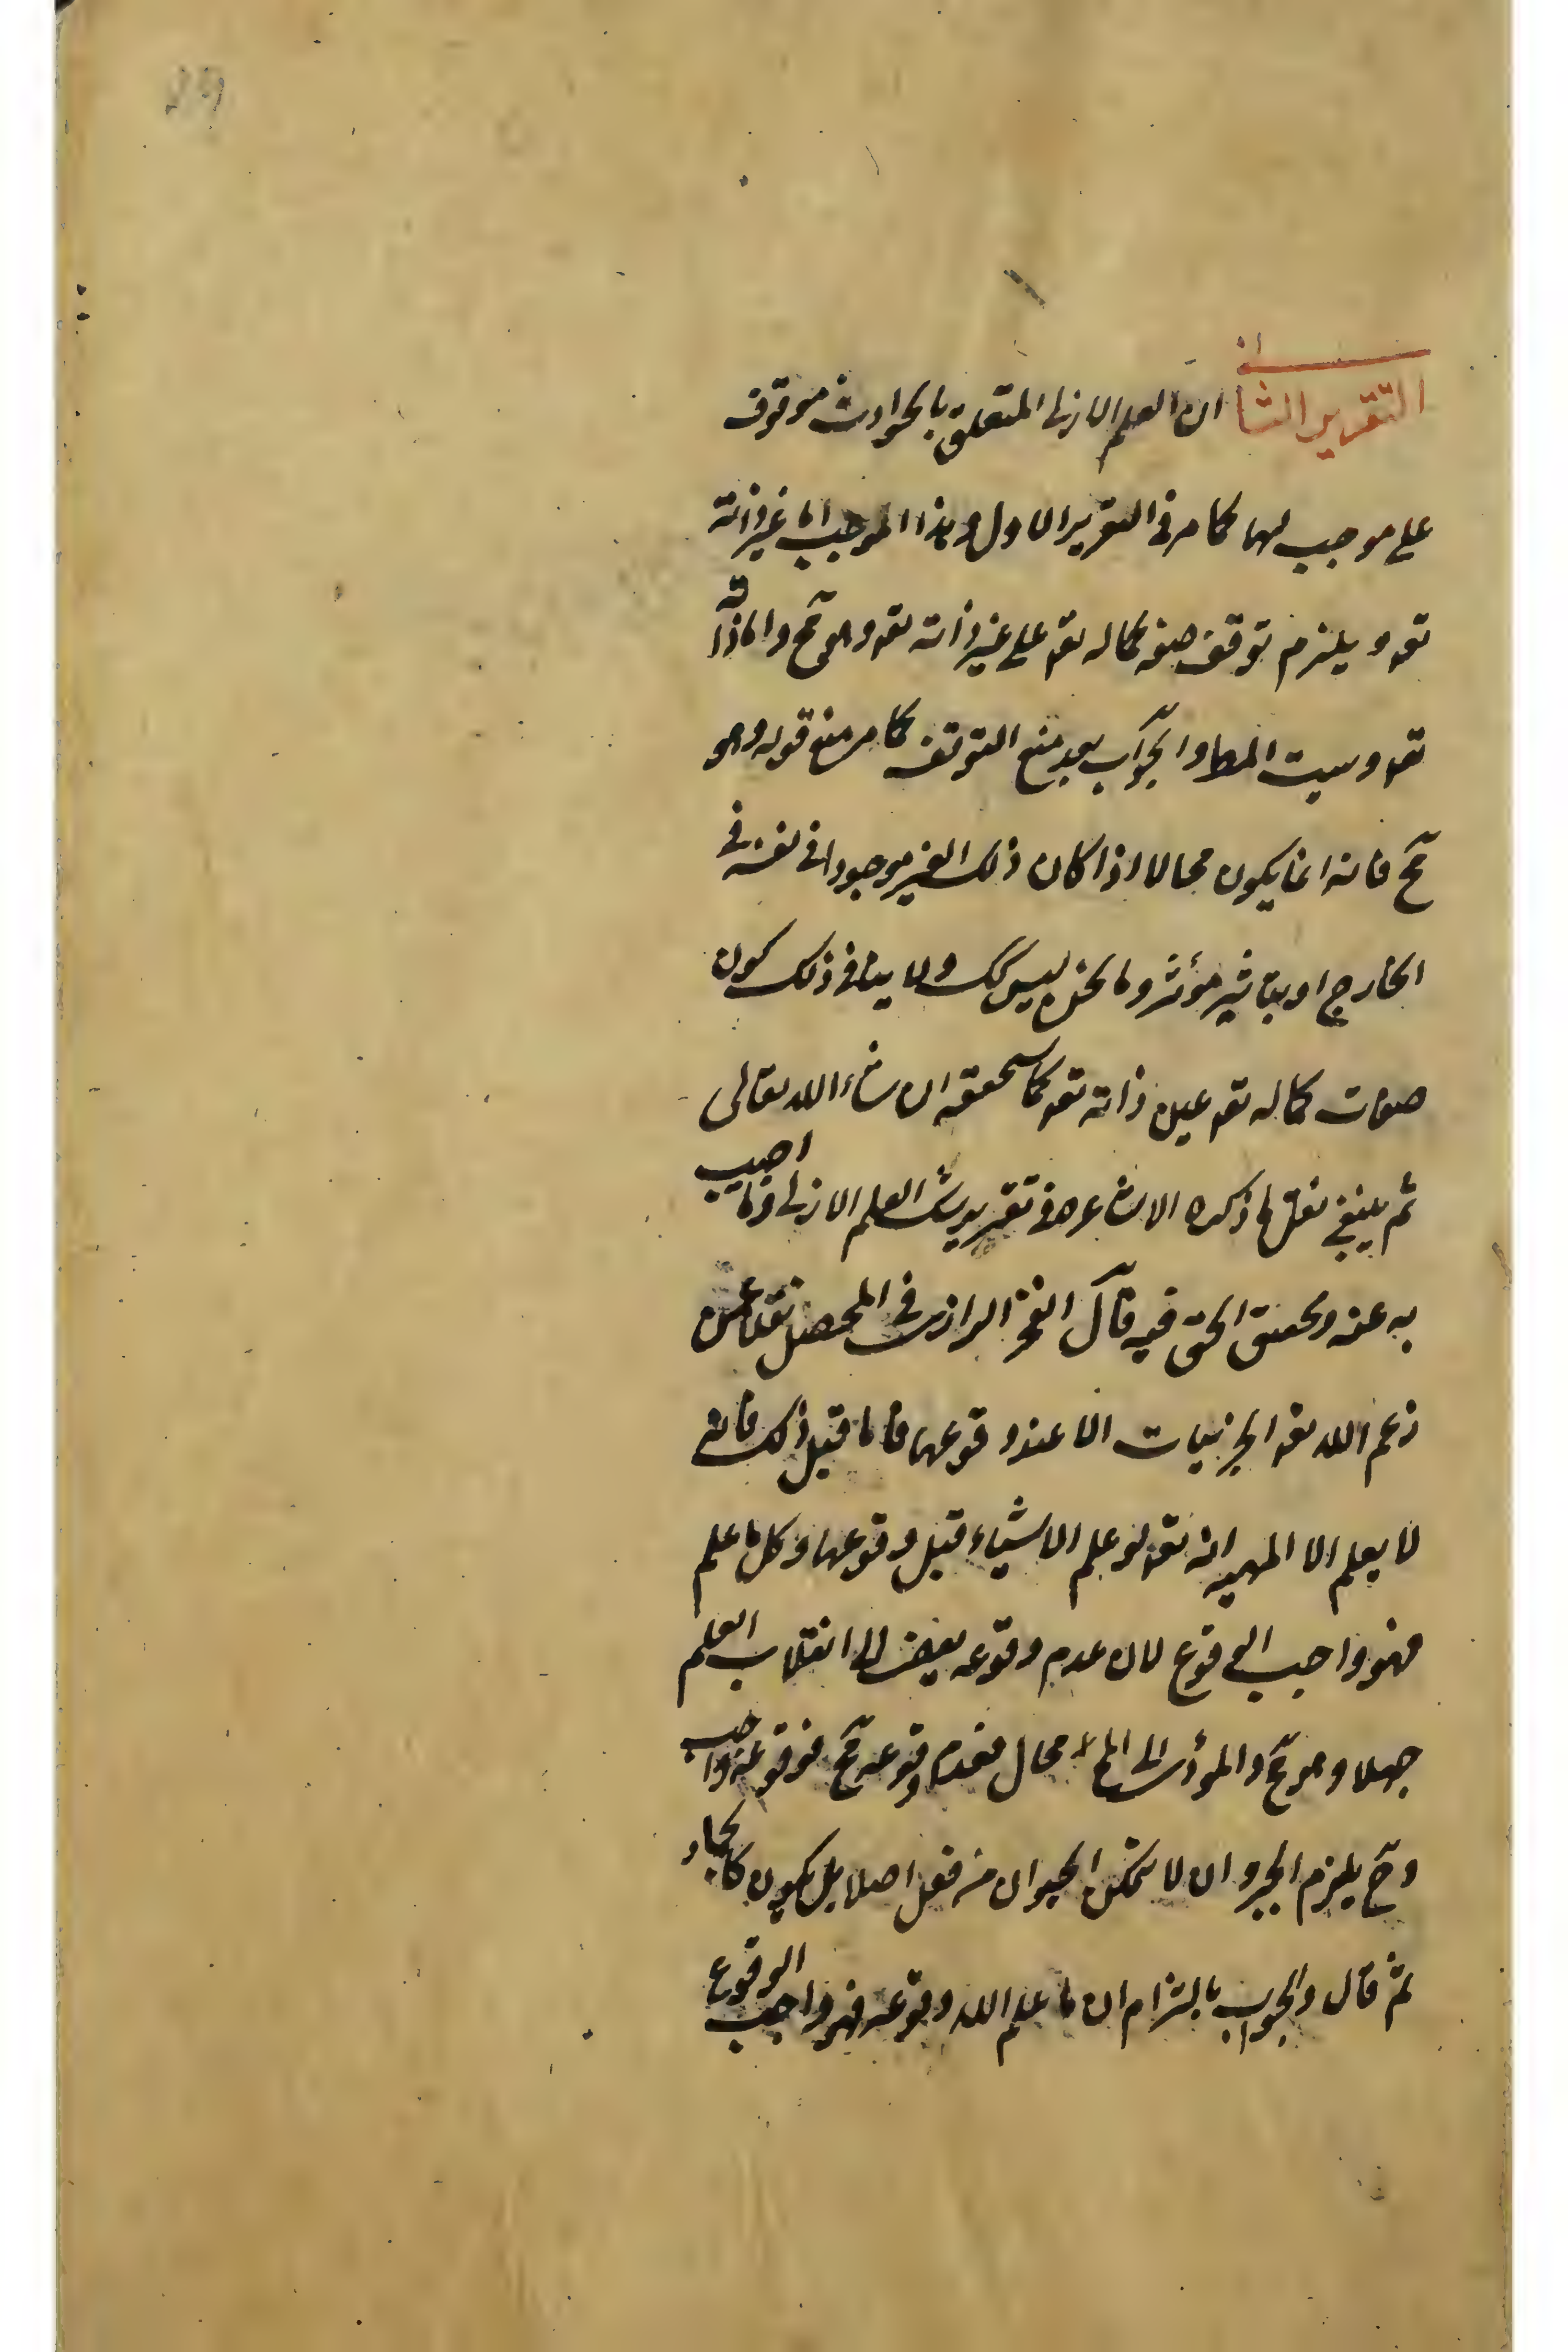 التقرير الثانى ان العلم الازلى المتعلق بالحوادث موقوف
على موجب لها كما مر فى التقرير الاول وهذا الموجب اما غير ذاته
تعـ ويلزم توقف صفة كماله تعـ على غير ذاته تعـ وهو مح واما ذاته
تعـ وسيت المط والجواب بعد منع التوقف كما مر منع قوله وهو
مح فانه انما يكون محالا اذا كان ذلك الغير موجودا فى نفسه فى
الخارج او بتاثير مؤثر وما نحن ليس كك ولا ينافى ذلك كون
صفات كماله تعـ عين ذاته تعـ كما سنحققه ان شاء الله تعالى
ثم ينبغى نقل ما ذكره الاشاعره فى تقرير شبـ العلم الازلى وما اجيب
به عنه وتحقيق الحق فيه قال الفخر الرازى فى المحصل نقلا عمن
زعم الله تعـ الجزئيات الا عند وقوعها فاما قبل ذلك فانه
لا يعلم الا المهيه انه تعـ لو علم الاشياء قبل وقوعها وكل ما علم
فهو واجب الوقوع لان عدم وقوعه يفضى الى انقلاب العلم
جهلا وهو مح والمؤدى الى المح محال فعدم وقوعه مح فوقوعه واجب
وح يلزم الجبر وان لا يتمكن الحيوان من فعل اصلا بل يكون كالجماد
ثم قال والجواب بالتزام ان ما علم الله وقوعه فهو واجب الوقوع